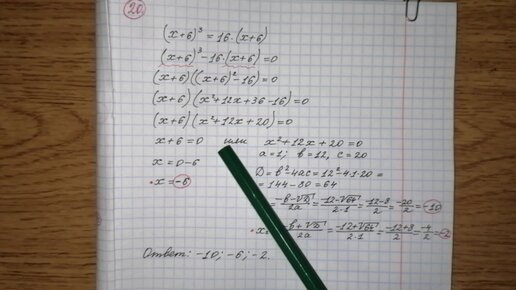 20
(x+6)³=16·(x+6)
(x+6)³-16·(x+6)=0
(x+6)((x+6)²-16)=0
(x+6)(x²+12x+36-16)=0
(x+6)(x²+12x+20)=0
x+6=0 или x²+12x+20=0
x=0-6 a=1; b=12, c=20
·x=-6 D=b²-4ac=12²-4·1·20=
=144-80=64
=(-b-√D)/2a=(-12-√64)/2·1=(-12-8)/2=-20/2=-10
·x =(-b+√D)/2a=(-12+√64)/2·1=(-12+8)/2=-4/2=-2
Ответ: -10; -6; -2.